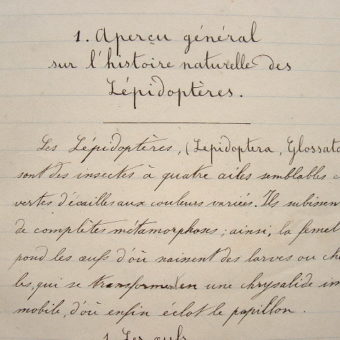 1. Aperçu général
sur l'histoire naturelle des
Lépidoptères.
Les Lépidoptères, (Lepidoptera, Glossata
sont des insectes à quatre ailes semblables c
vertes d'écailles aux couleurs variées. Ils subissen
de complètes métamorphoses; ainsi, la femel
pond les œufs d'où naissent des larves ou che
les, qui se transforment en une chrysalide im
mobile, d'où enfin éclot le papillon.
1. Les œufs